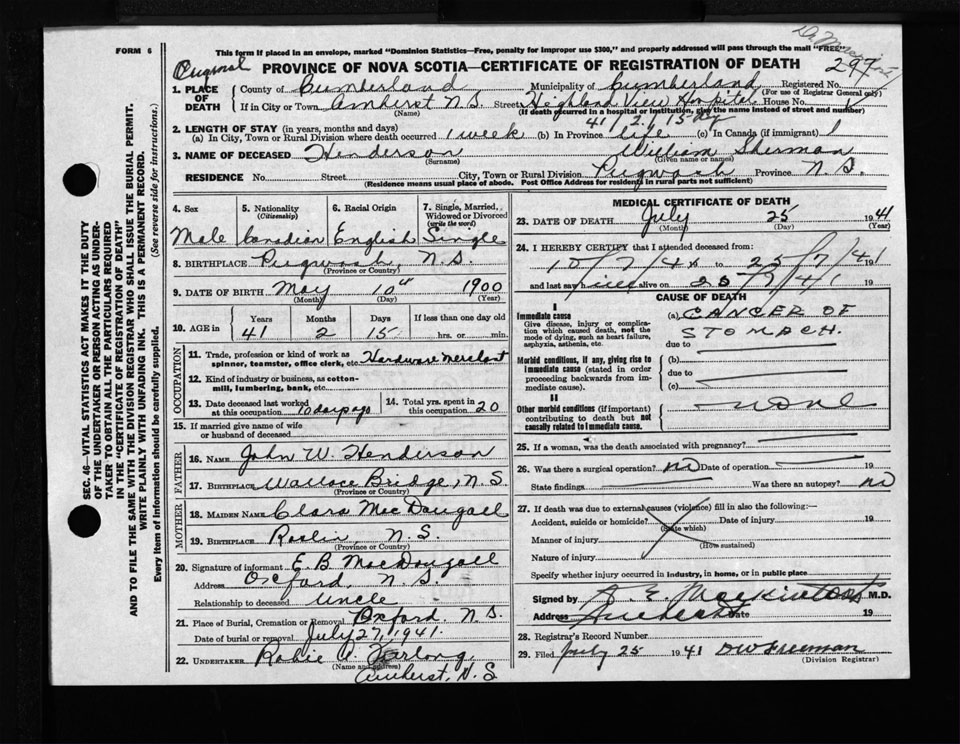 FORM 6
This form if placed in an envelope, marked "Dominion Statistics—Free, penalty for improper use $300," and properly addressed will pass through the mail "FREE"
PROVINCE OF NOVA SCOTIA—CERTIFICATE OF REGISTRATION OF DEATH
1. PLACE OF DEATH County of Cumberland Municipality of Cumberland Registered No. 297
(For use of Registrar General only)
If in City or Town Amherst N.S. Street Highland View Hospital House No.
(Name) (If death occurred in a hospital or institution, give the name instead of street and number)
41 2 15 dy
2. LENGTH OF STAY (in years, months and days)
(a) In City, Town or Rural Division where death occurred 1 week (b) In Province life (c) In Canada (if immigrant)
3. NAME OF DECEASED Henderson William Sherman
(Surname) (Given name or names)
RESIDENCE No. Street City, Town or Rural Division Pugwash Province N.S.
(Residence means usual place of abode. Post Office Address for residents in rural parts not sufficient)
4. Sex 5. Nationality (Citizenship) 6. Racial Origin 7. Single, Married, Widowed or Divorced (write the word)
Male Canadian English Single
8. BIRTHPLACE Pugwash, N.S.
(Province or Country)
9. DATE OF BIRTH May 10" 1900
(Month) (Day) (Year)
10. AGE in Years Months Days If less than one day
41 2 15 hrs. or min.
OCCUPATION
11. Trade, profession or kind of work as spinner, teamster, office clerk, etc. Hardware merchant
12. Kind of industry or business, as cotton-mill, lumbering, bank, etc.
13. Date deceased last worked at this occupation 10 days ago 14. Total yrs. spent in this occupation 20
15. If married give name of wife or husband of deceased
FATHER
16. Name John W. Henderson
17. Birthplace Wallace Bridge, N.S.
(Province or Country)
MOTHER
18. MAIDEN NAME Clara MacDougall
19. BIRTHPLACE Roslin, N.S.
(Province or Country)
20. Signature of informant E. B. MacDougall
Address Oxford, N.S.
Relationship to deceased Uncle
21. Place of Burial, Cremation or Removal Oxford, N.S.
Date of burial or removal July 27, 1941.
22. UNDERTAKER Robie A. Furlong,
(Name and address)
Amherst, N.S
MEDICAL CERTIFICATE OF DEATH
23. DATE OF DEATH July 25 1941
(Month) (Day) (Year)
24. I HEREBY CERTIFY that I attended deceased from:
to 25/7/41
and last saw h alive on 25/7/41 19
CAUSE OF DEATH
I
Immediate cause
Give disease, injury or complication which caused death, not the mode of dying, such as heart failure, asphyxia, asthenia, etc.
(a) CANCER OF
STOMACH.
due to
Morbid conditions, if any, giving rise to immediate cause (stated in order proceeding backwards from immediate cause).
(b)
due to
(c)
II
Other morbid conditions (if important) contributing to death but not causally related to immediate cause.
none
25. If a woman, was the death associated with pregnancy?
26. Was there a surgical operation? no Date of operation 19
State findings Was there an autopsy? no
27. If death was due to external causes (violence) fill in also the following:—
Accident, suicide or homicide? Date of injury 19
(State which)
Manner of injury
(How sustained)
Nature of injury
Specify whether injury occurred in industry, in home, or in public place
Signed by Mackintosh M.D.
Address Amherst Date 19
28. Registrar's Record Number
29. Filed July 25 1941 DW Freeman
(Division Registrar)
SEC. 46—VITAL STATISTICS ACT MAKES IT THE DUTY
OF THE UNDERTAKER OR PERSON ACTING AS UNDERTAKER TO OBTAIN ALL THE PARTICULARS REQUIRED
IN THE "CERTIFICATE OF REGISTRATION OF DEATH"
AND TO FILE THE SAME WITH THE DIVISION REGISTRAR WHO SHALL ISSUE THE BURIAL PERMIT.
WRITE PLAINLY WITH UNFADING INK. THIS IS A PERMANENT RECORD.
Every item of Information should be carefully supplied. (See reverse side for instructions.)